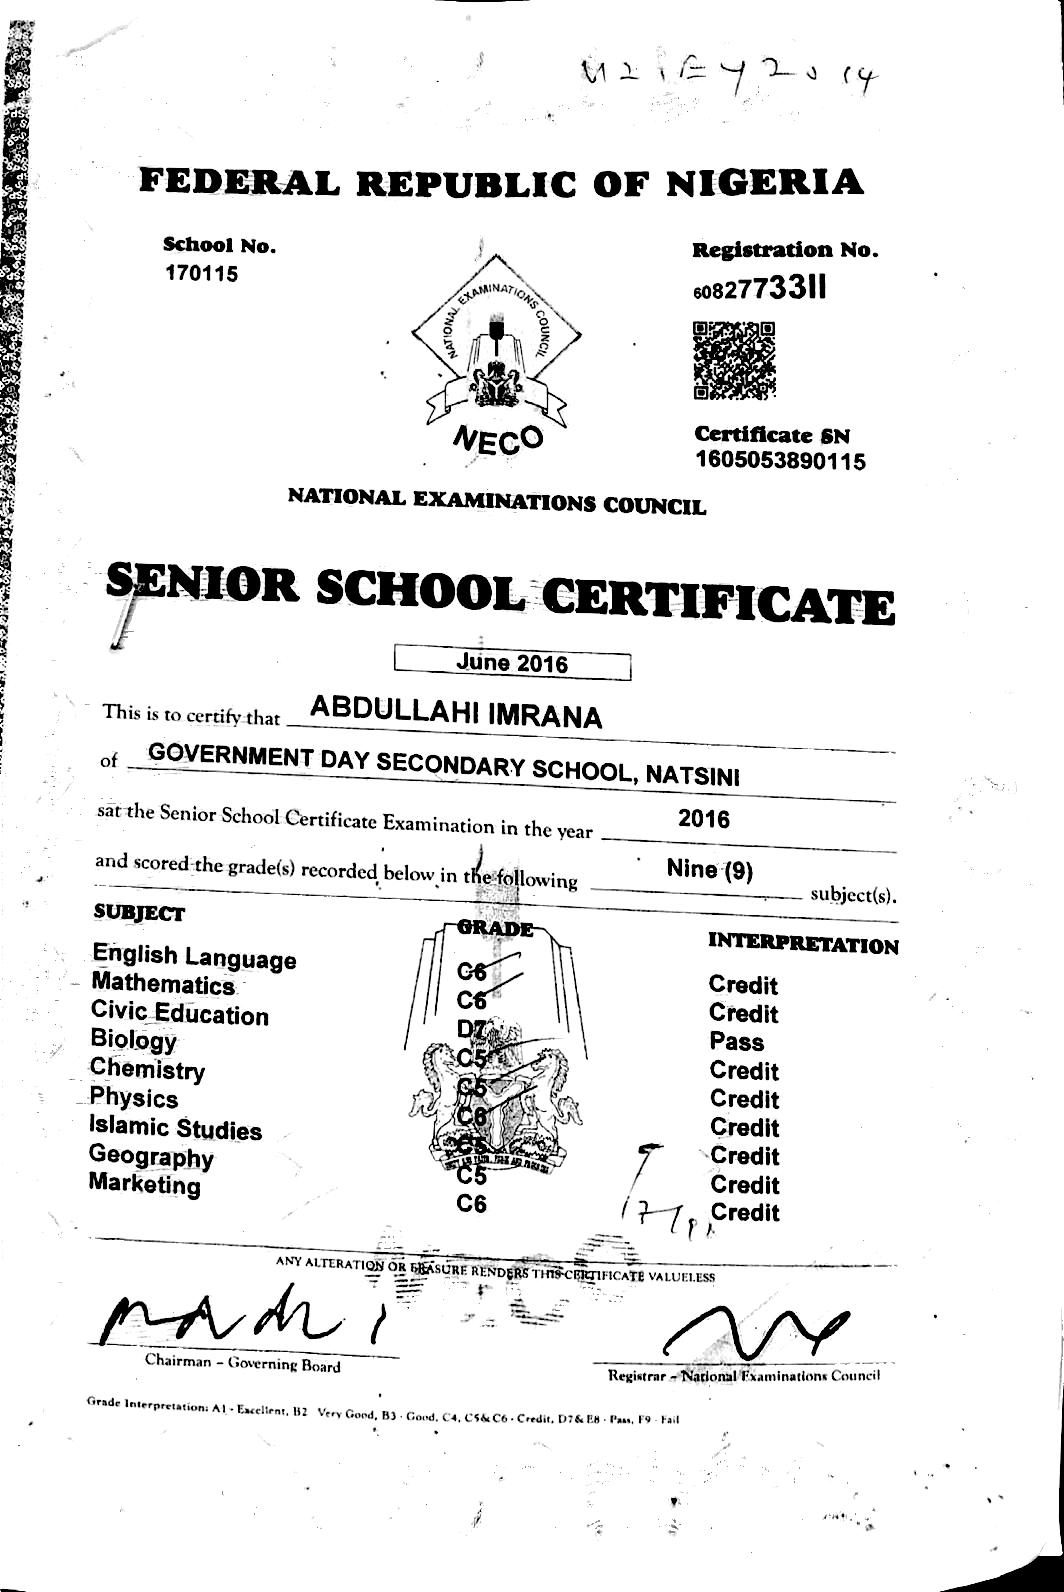 FEDERAL REPUBLIC OF NIGERIA
School No.
170115
Registration No.
60827733II
NATIONAL EXAMINATIONS COUNCIL
NECO
Certificate SN
1605053890115
NATIONAL EXAMINATIONS COUNCIL
SENIOR SCHOOL CERTIFICATE
June 2016
This is to certify that ABDULLAHI IMRANA
of GOVERNMENT DAY SECONDARY SCHOOL, NATSINI
sat the Senior School Certificate Examination in the year 2016
and scored the grade(s) recorded below in the following Nine (9) subject(s).
SUBJECT GRADE INTERPRETATION
English Language C6 Credit
Mathematics C6 Credit
Civic Education D7 Pass
Biology C5 Credit
Chemistry C5 Credit
Physics C6 Credit
Islamic Studies C5 Credit
Geography C5 Credit
Marketing C6 Credit
ANY ALTERATION OR ERASURE RENDERS THIS CERTIFICATE VALUELESS
Chairman - Governing Board
Registrar - National Examinations Council
Grade Interpretation: A1 - Excellent, B2 Very Good, B3 - Good, C4, C5 & C6 - Credit, D7 & E8 - Pass, F9 - Fail